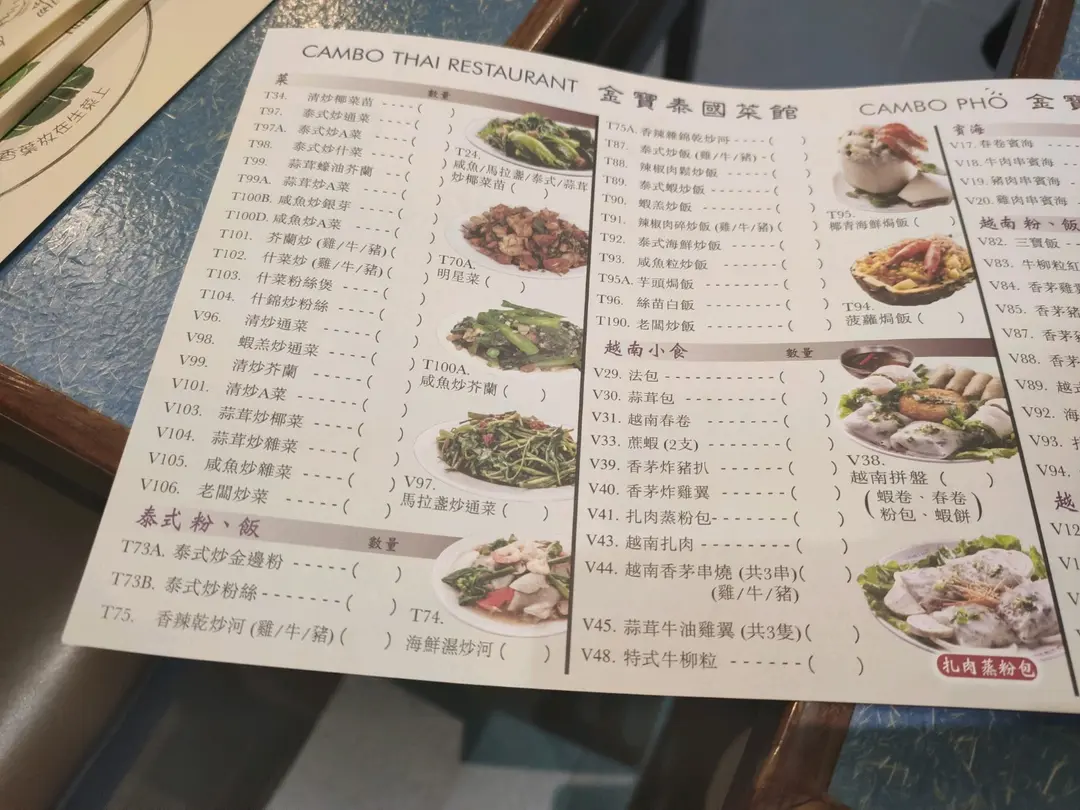 香葉放在生菜上
CAMBO THAI RESTAURANT 金寶泰國菜館
菜 數量
T34. 清炒椰菜苗 ----( )
T97. 泰式炒通菜 ----( )
T97A. 泰式炒A菜 ----( )
T98. 泰式炒什菜 ----( )
T99. 蒜茸蠔油芥蘭 ----( )
T99A. 蒜茸炒A菜 ----( )
T100B. 咸魚炒銀芽 ----( )
T100D. 咸魚炒A菜 ----( )
T101. 芥蘭炒 (雞/牛/豬)( )
T102. 什菜炒 (雞/牛/豬)( )
T103. 什菜粉絲煲 -----( )
T104. 什錦炒粉絲 -----( )
V96. 清炒通菜 -----( )
V98. 蝦羔炒通菜 -----( )
V99. 清炒芥蘭 ------( )
V101. 清炒A菜 ------( )
V103. 蒜茸炒椰菜 -----( )
V104. 蒜茸炒雜菜 -----( )
V105. 咸魚炒雜菜 -----( )
V106. 老闆炒菜 ------( )
T24.
咸魚/馬拉盞/泰式/蒜茸
炒椰菜苗 ( )
T70A.
明星菜 ( )
T100A.
咸魚炒芥蘭 ( )
V97.
馬拉盞炒通菜 ( )
泰式 粉、飯 數量
T73A. 泰式炒金邊粉 ------( )
T73B. 泰式炒粉絲--------( )
T75. 香辣乾炒河 (雞/牛/豬)( )
T74.
海鮮濕炒河 ( )
T75A. 香辣雜錦乾炒河 ---( )
T87. 泰式炒飯 (雞/牛/豬) -( )
T88. 辣椒肉鬆炒飯 ----( )
T89. 泰式蝦炒飯 ------( )
T90. 蝦羔炒飯 -------( )
T91. 辣椒肉碎炒飯 (雞/牛/豬)( )
T92. 泰式海鮮炒飯 ----( )
T93. 咸魚粒炒飯 ------( )
T95A. 芋頭焗飯 -------( )
T96. 絲苗白飯 -------( )
T190. 老闆炒飯 -------( )
T95.
椰青海鮮焗飯 ( )
T94.
菠蘿焗飯 ( )
越南小食 數量
V29. 法包 ------------( )
V30. 蒜茸包 ----------( )
V31. 越南春卷 --------( )
V33. 蔗蝦 (2支) ------( )
V39. 香茅炸豬扒 -------( )
V40. 香茅炸雞翼 -------( )
V41. 扎肉蒸粉包--------( )
V43. 越南扎肉 ---------( )
V44. 越南香茅串燒 (共3串)( )
(雞/牛/豬)
V45. 蒜茸牛油雞翼 (共3隻)( )
V48. 特式牛柳粒 -------( )
V38.
越南拼盤 ( )
(蝦卷、春卷
粉包、蝦餅)
扎肉蒸粉包
CAMBO PHỞ 金寶
賓海
V17. 春卷賓海 ---
V18. 牛肉串賓海 --
V19. 豬肉串賓海 --
V20. 雞肉串賓海 -
越南 粉、飯
V82. 三寶飯 --
V83. 牛柳粒紅
V84. 香茅雞翼
V85. 香茅豬
V87. 香茅
V88. 香茅
V89. 越式
V92. 海
V93.
V94.
越
V12
V1